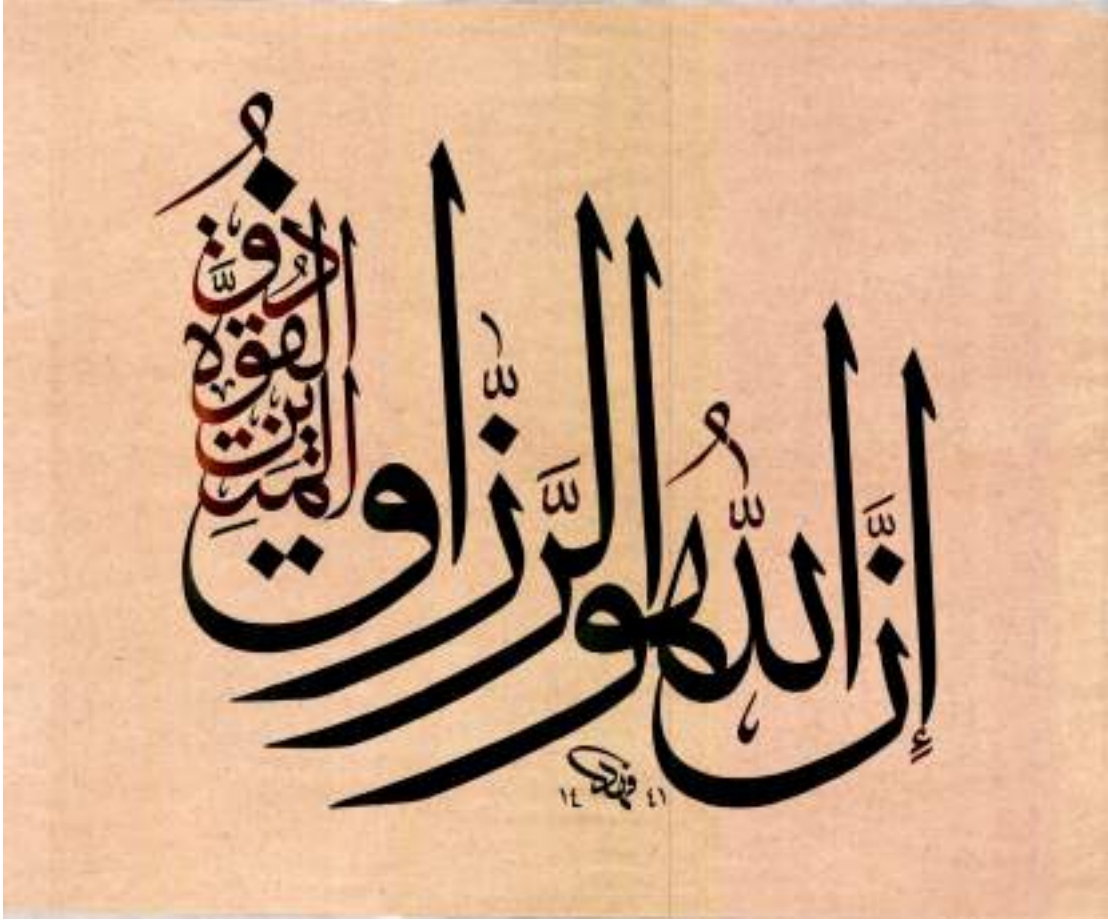 إِنَّ اللّٰهَ هُوَ الرَّزَّاقُ
ذُو
الْقُوَّةِ
الْمَتِينُ
١٤ ٤١